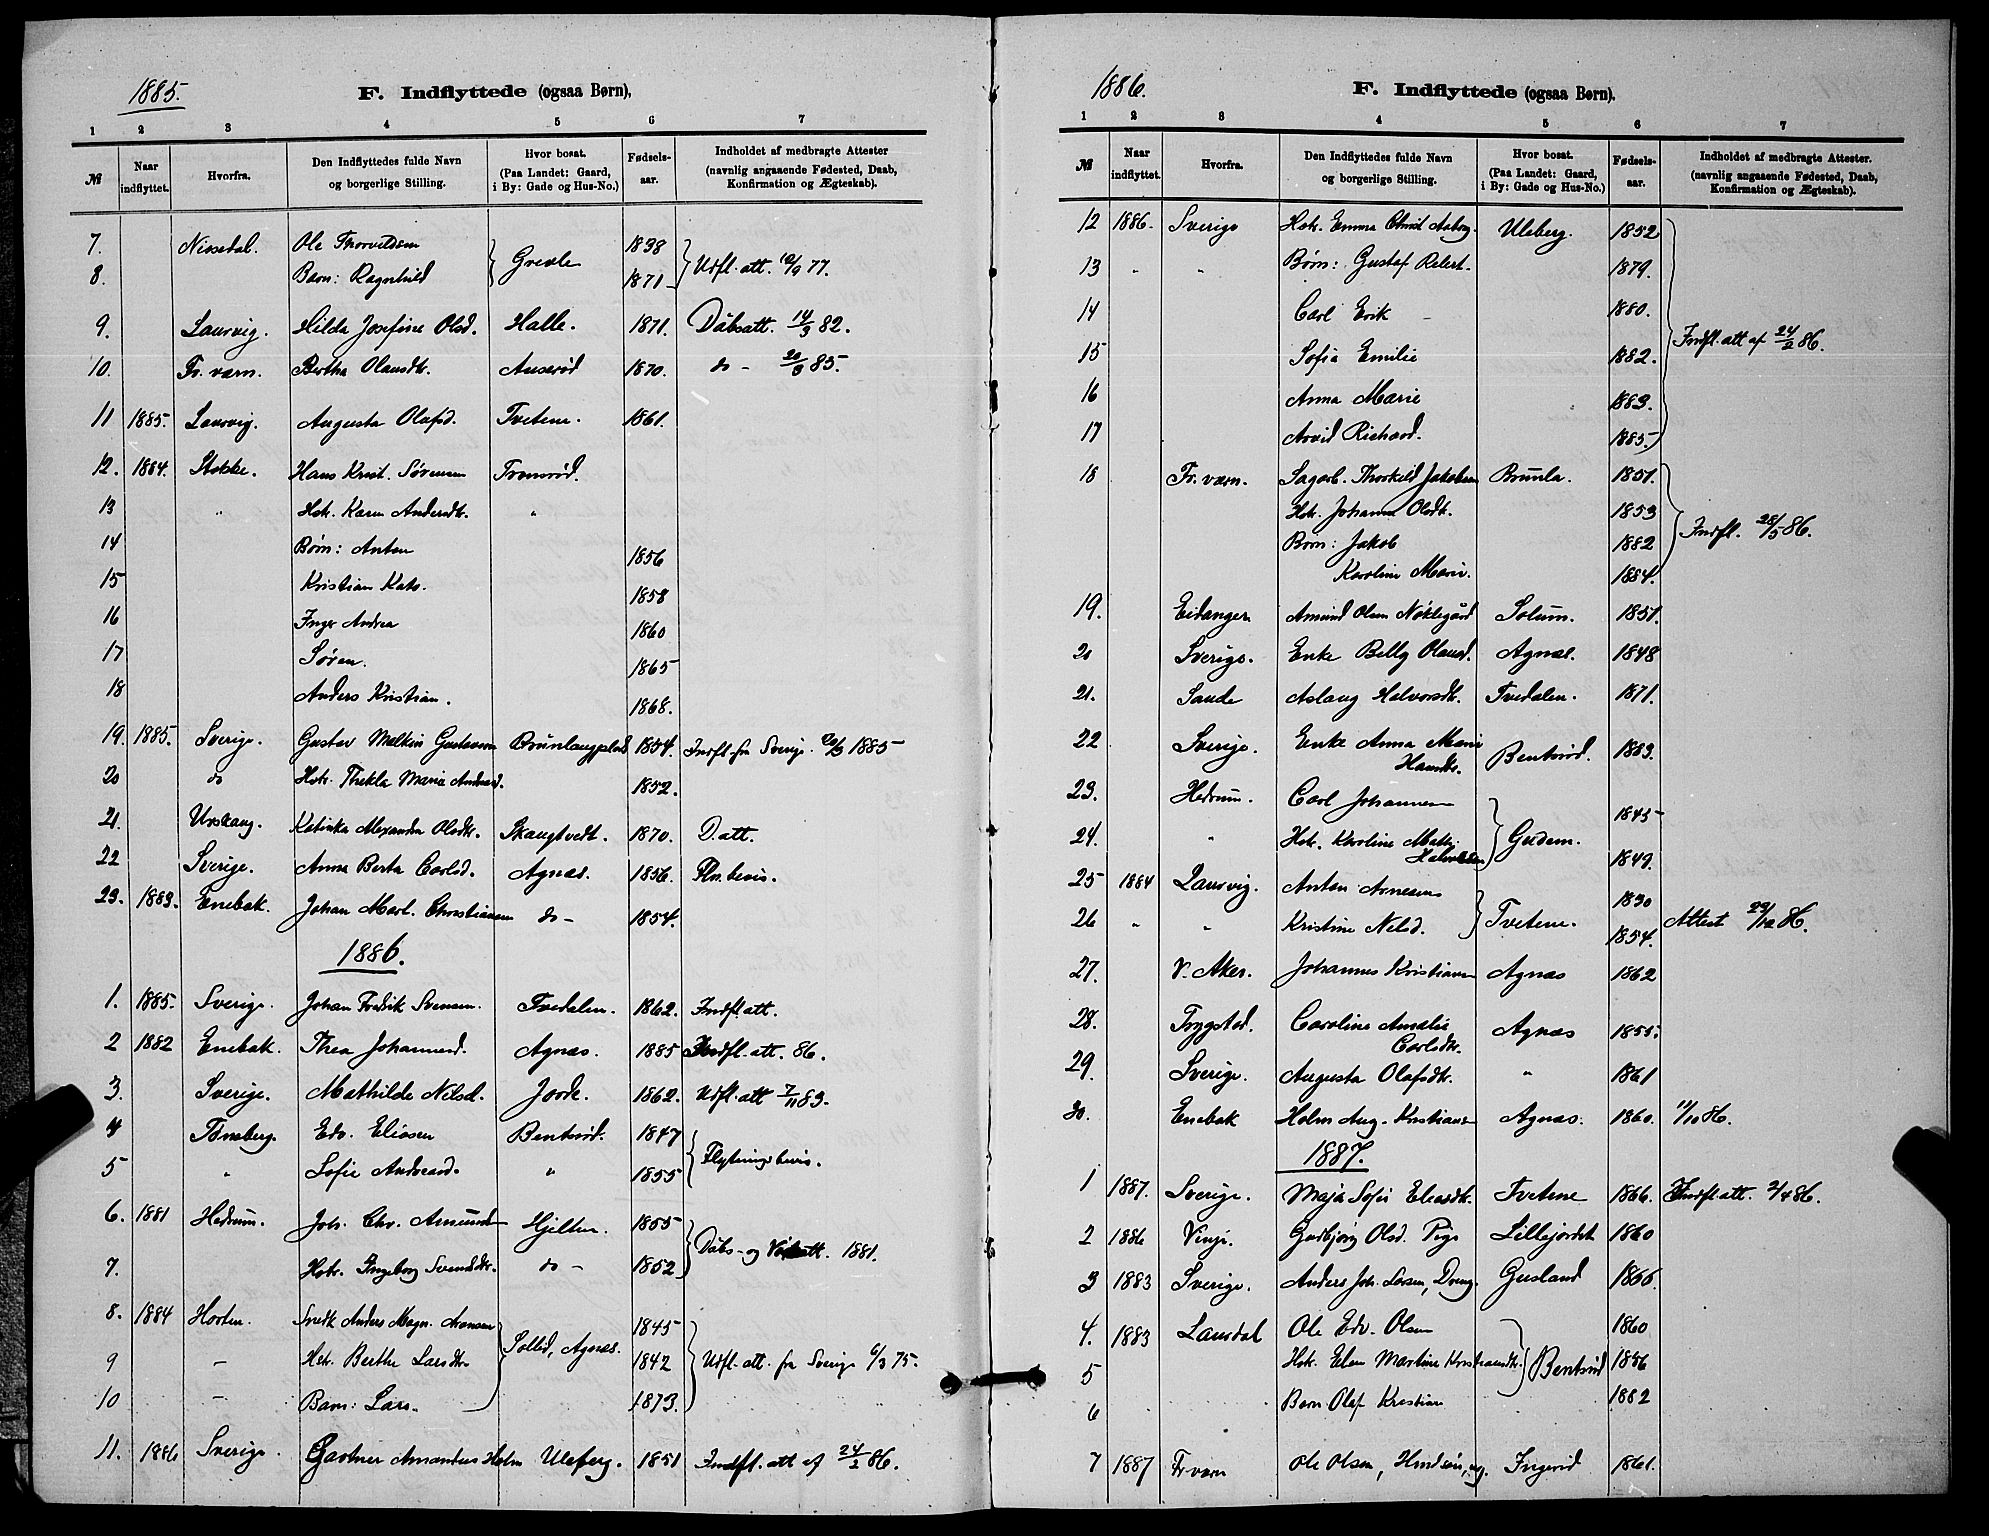 1885.
F. Indflyttede (ogsaa Børn).
1 2 3 4 5 6 7
№ Naar indflyttet. Hvorfra. Den Indflyttedes fulde Navn og borgerlige Stilling. Hvor bosat. (Paa Landet: Gaard, i By: Gade og Hus-No.) Fødsels-aar. Indholdet af medbragte Attester (navnlig angaaende Fødested, Daab, Konfirmation og Ægteskab).
7. Nissedal. Ole Thorvildsen Grevle 1838 Udfl. att. 10/9 77.
8. Barn: Ragnhild 1871
9. Laurvig. Hilda Josefine Olsd. Halle. 1871. Dåbsatt. 14/3 82.
10. Fr. værn. Bertha Olausdtr. Auserød 1870. do - 20/3 85.
11 1885. Laurvig. Augusta Olafsd. Tvetene. 1861.
12. 1884. Stokke. Hans Krist. Sørensen Tronsrød.
13 " Hstr. Karen Andersdtr. "
14 Børn: Anton 1856
15 Kristian 1858
16 Inger Andrea 1860
17 Søren. 1865
18 Anders Kristian. 1868.
19. 1885. Sverige. Gustav Gustavson 1854. Indfl. fra Sverige 1885
20 do Hstr. Thekla Maria 1852.
21. Urskoug. Katinka Alexandra Olsdtr. Skaugtvedt. 1870. D. att.
22 Sverige. Anna Berta Carlsd. Agnæs. 1856. Fln. bevis.
23. 1883. Enebak. Johan Marl. Christiansen do - 1854.
1886.
1. 1885. Sverige. Johan Fredrik Svensen. Tvedalen. 1862. Indfl. att.
2 1882 Enebak. Thea Johannesd. Agnæs. 1885 Indfl. att. 86.
3. Sverige. Mathilde Nilsd. Jorde. 1862. Udfl. att 7/11 83.
4 Tønsberg. Edv. Eliasen Bentsrød. 1847 Flytningsbevis.
5 " Sofie Andreasd. " 1855
6. 1881 Hedrum. Joh. Chr. Amunds Hjelten. 1855 Dåbs- og 1881.
7. Hstr. Ingeborg Svendsdtr. do - 1852
8. 1884 Horten. Anders Magn. Aronsen Agnæs. 1845 Udfl. att. fra Sverige 6/3 75.
9 - Hstr. Berthe Larsdtr. 1842
10 - Barn: Lars. 1873.
11. 1886 Sverige. Gartner Amandus Holm Uleberg. 1851 Indfl. att af 24/2 86.
1886.
F. Indflyttede (ogsaa Børn).
1 2 3 4 5 6 7
№ Naar indflyttet. Hvorfra. Den Indflyttedes fulde Navn og borgerlige Stilling. Hvor bosat. (Paa Landet: Gaard, i By: Gade og Hus-No.) Fødsels-aar. Indholdet af medbragte Attester. (navnlig angaaende Fødested, Daab, Konfirmation og Ægteskab).
12 1886. Sverige Hstr. Emma Uleberg. 1852
13 " " Børn: Gustaf 1879.
14 Carl Erik 1880. Indfl. att af 24/2 86.
15 Sofia Emilie 1882.
16 Anna Marie 1883.
17 Arvid Richard. 1885.
18 Fr. værn. Sagarb. Thorkild Jakobsen Brunla. 1851.
Hstr. Johanne Olsdtr. 1853 Indfl. 28/5 86.
Børn: Jakob 1882
Karoline Marie. 1884.
19. Eidanger Amund Olsen Nøklegård Solum. 1851.
20 Sverige. Enke Olausd. Agnæs. 1848
21. Sande Aslaug Halvorsdtr. Tvedalen. 1871.
22 Sverige. Enke Anna Marie Hansdtr. Bentsrød. 1883.
23. Hedrum. Carl Johannesen Gudem. 1845
24. " Hstr. Karoline 1849.
25 1884 Laurvig. Anton Arnesen Tvetene. 1830 Attest 23/12 86.
26 " " Kristine Nilsd. 1854.
27. V. Aker. Johannes Kristiansen Agnæs 1862
28. Trygstad. Caroline Amalie Carlsdtr. Agnæs 1855.
29. Sverige. Augusta Olafsdtr. " 1861
30. Enebak Holm Aug. Kristiansen Agnæs. 1860. 11/10 86.
1887.
1 1887. Sverige. Maja Sofie Eliasdtr. Tvetene 1866. Indfl. att. 2/4 86.
2 1886 Vinje. Gudbjørg Olsd. Pige Lillejordet 1860
3 1883 Sverige. Anders Joh. Larsen, Dreng. Gusland 1866.
4. 1883 Laurdal Ole Edv. Olsen Bentsrød 1860
5 Hstr. Elen Martine Kristiansdtr. 1856
6 Barn Olaf Kristian 1882
7 1887 Fr værn Ole Olsen, Ingerød 1861.